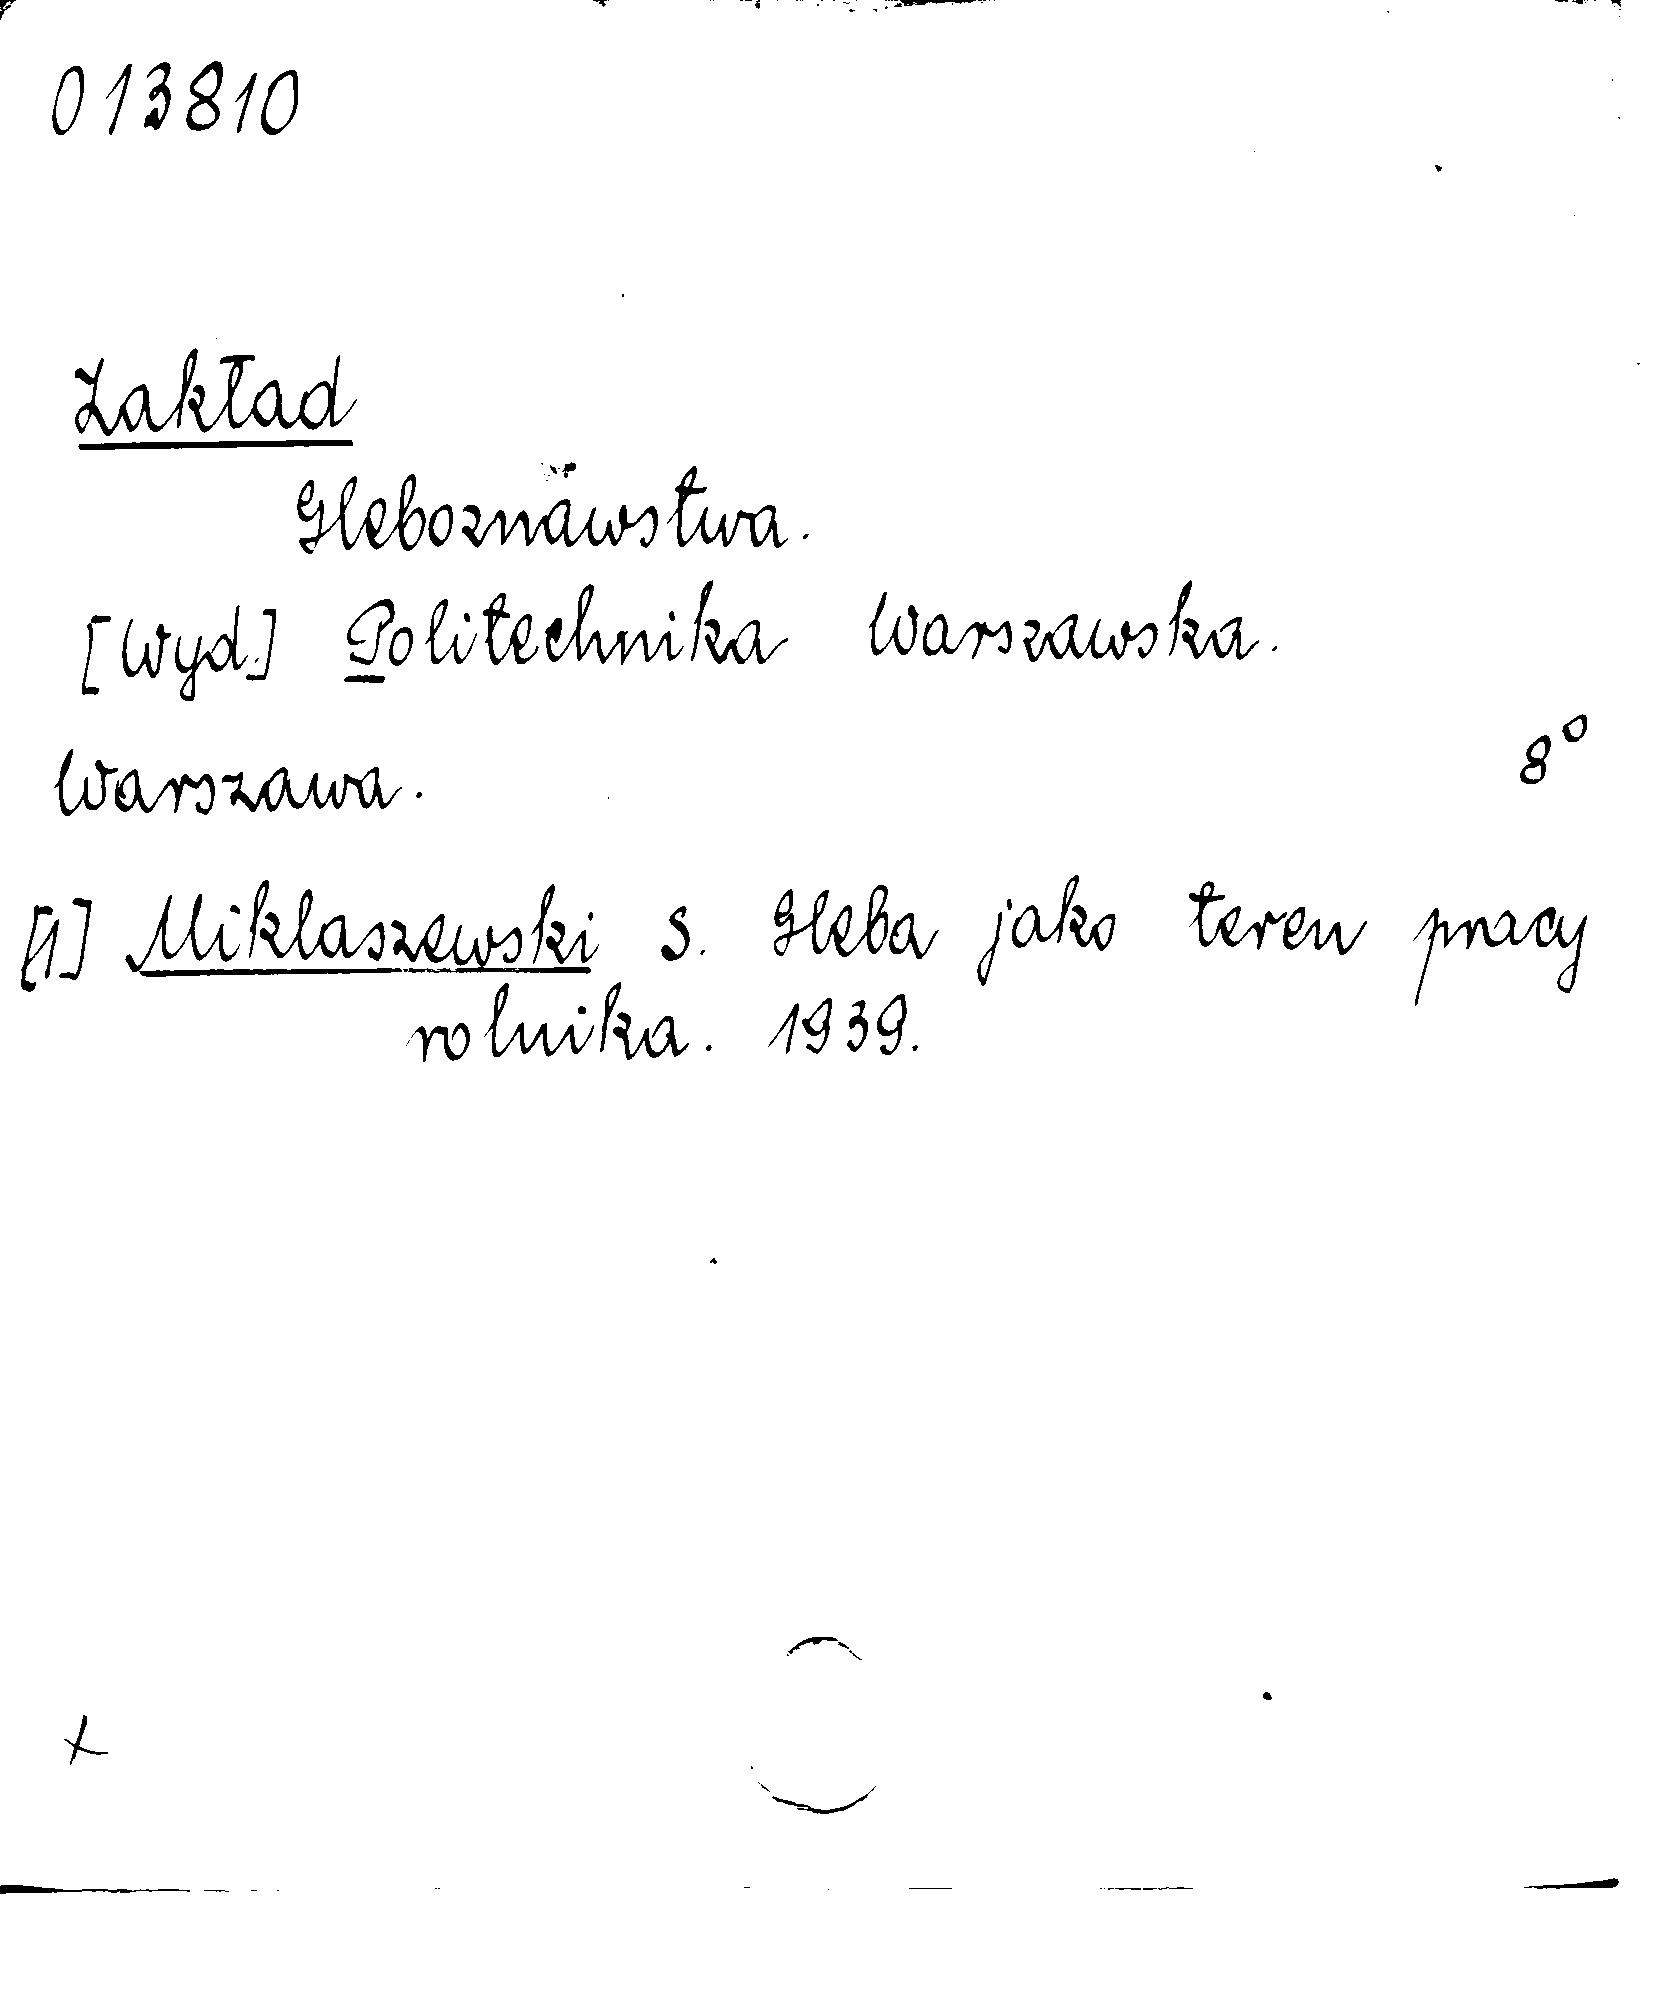 013810
Zakład
Gleboznawstwa.
[Wyd.] Politechnika Warszawska.
Warszawa. 8°
[1] Miklaszewski S. Gleba jako teren pracy
rolnika. 1939.
x